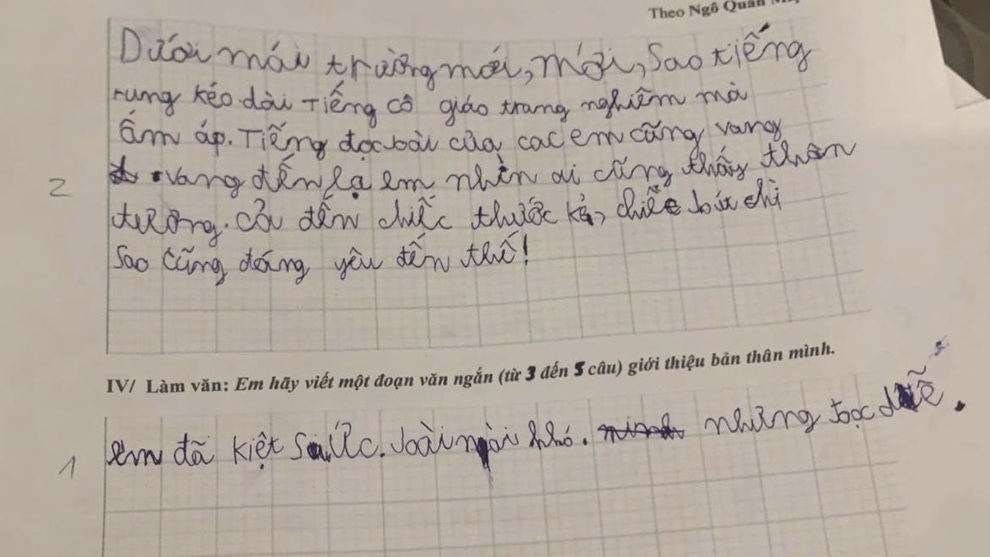 Theo Ngô Quân
Dưới mái trường mới, mới, Sao tiếng
rung kéo dài Tiếng cô giáo trang nghiêm mà
Ấm áp. Tiếng đọc bài của cac em cũng vang
vang đến lạ em nhìn ai cũng thấy thân
tương. Cả đến chiếc thước kẻ, chiếc bút chì
Sao Cũng đáng yêu đến thế!
2
IV/ Làm văn: Em hãy viết một đoạn văn ngắn (từ 3 đến 5 câu) giới thiệu bản thân mình.
em đã kiệt Sức. bài này khó. những đọc dễ.
1